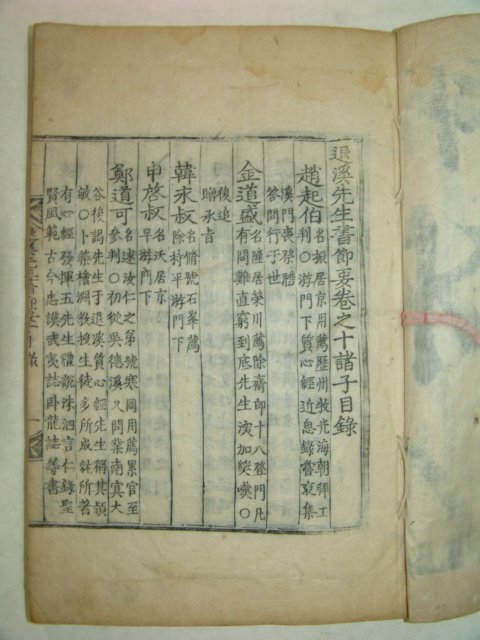 退溪先生書節要卷之十諸子目錄
趙起伯 名振居京用薦歷州牧光海朝拜工
判○游門下質心經近思錄嘗裒集
溪門喪祭禮
答問行于世
金道盛 名隆居榮川薦除齋郎十八登門凡
有問難直窮到底先生深加奬嘆○
後追
贈承旨
韓永叔 名脩號石峯薦
除持平游門下
申啓叔 名沃居京
早游門下
鄭道可 名逑汝仁之弟號寒岡用薦累官至
參判○初從吳德溪又問業南冥大
谷後謁先生于退溪質心經先生稱其穎
敏○卜築檜淵敎授生徒多所成就所著
有心經發揮五先生禮說洙泗言仁錄聖
賢風範古今忠謨武夷誌臥龍誌等書